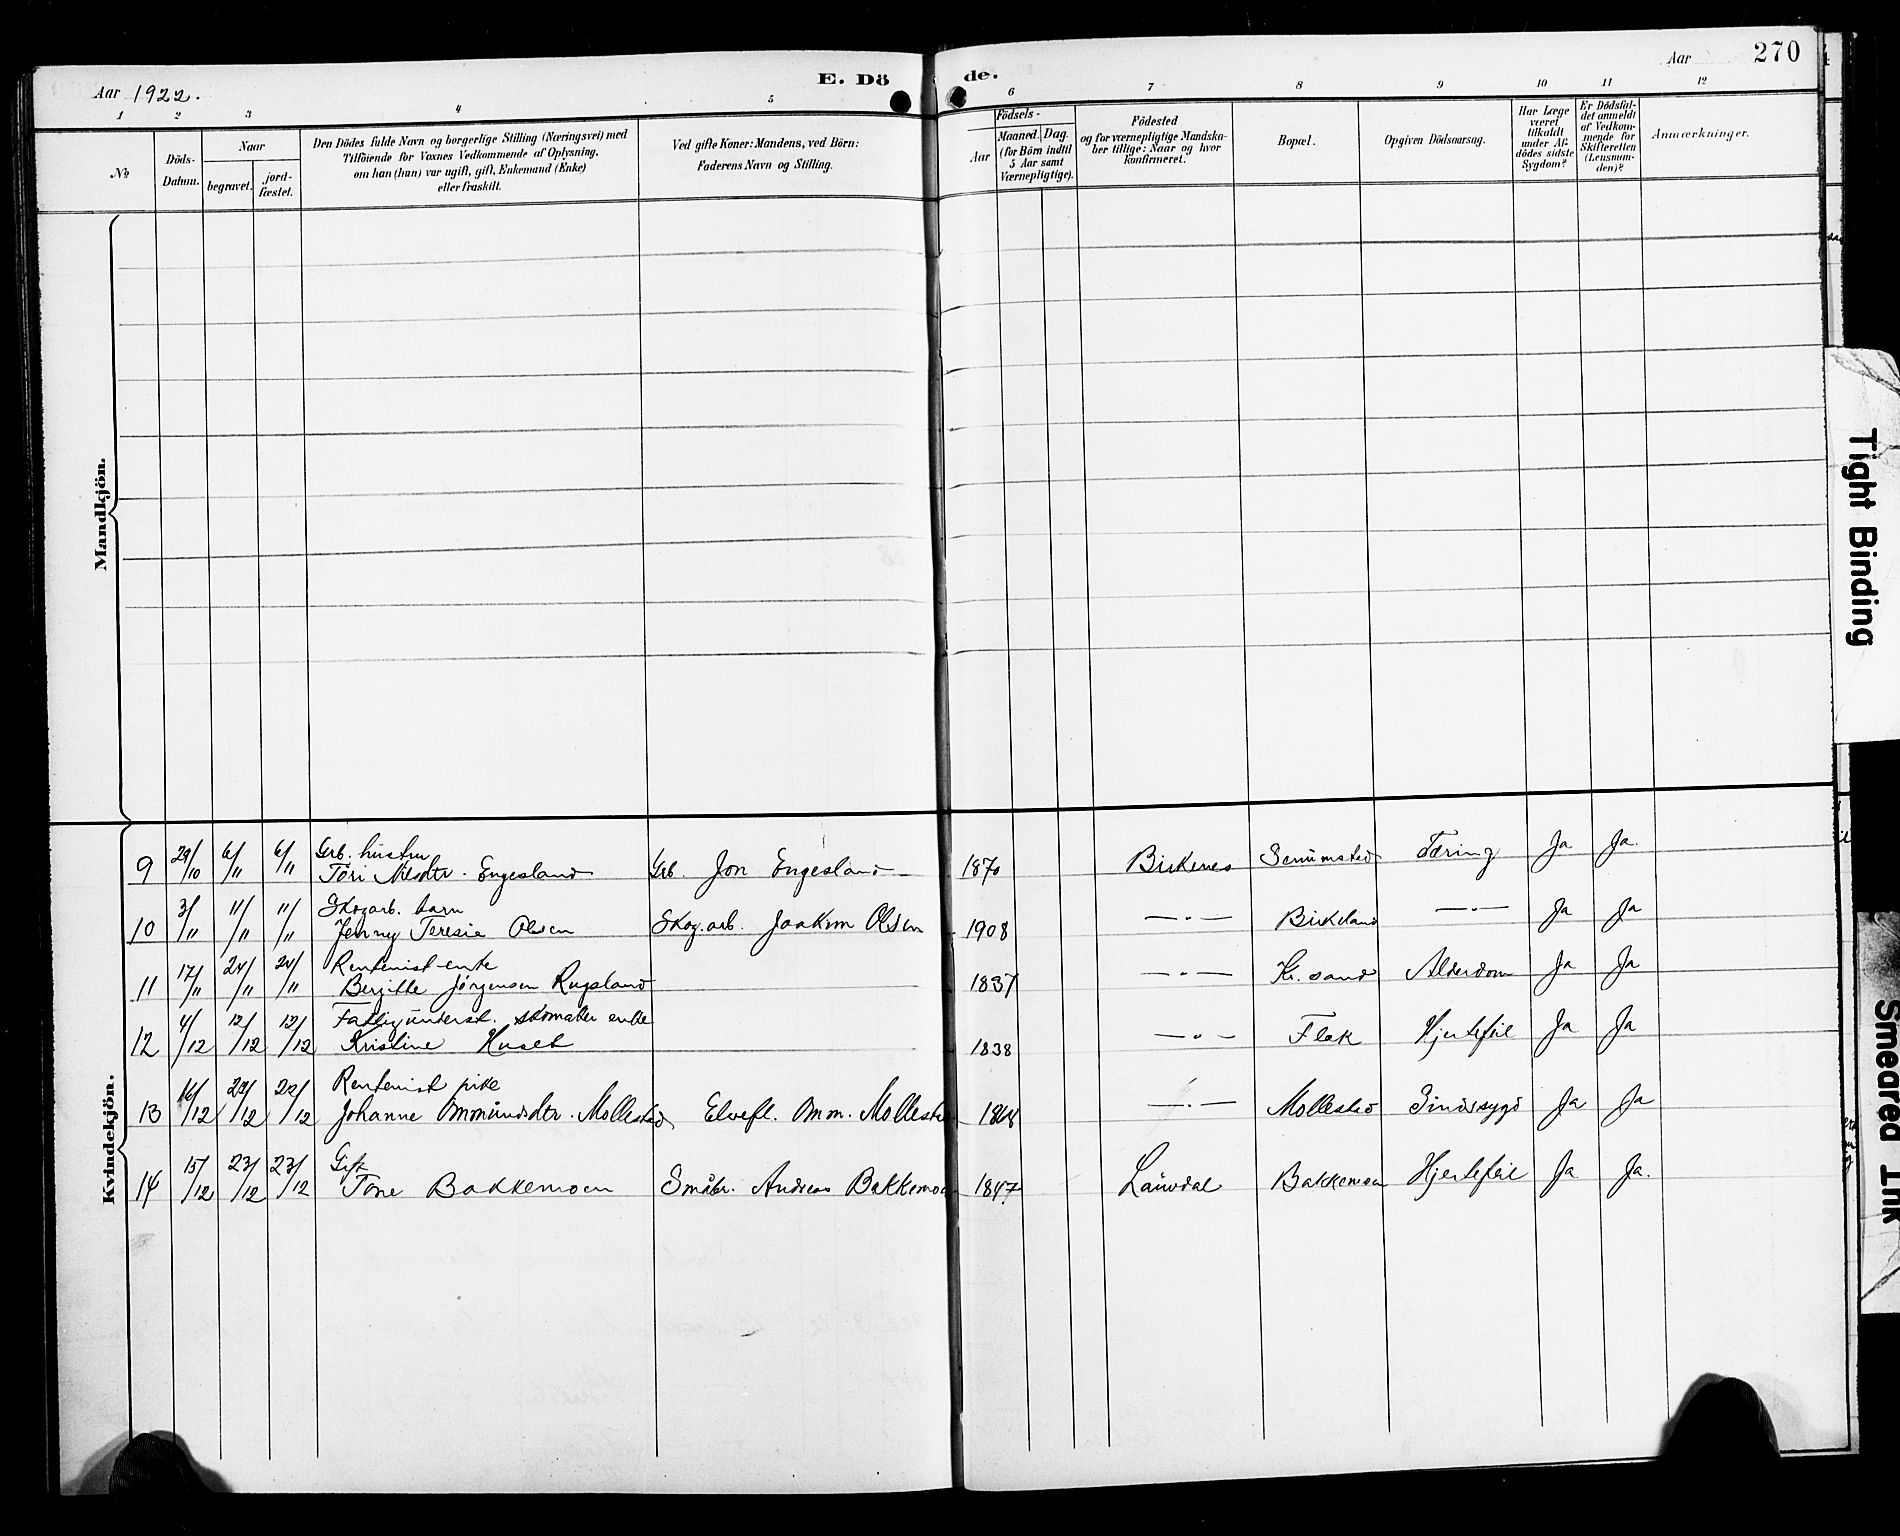 Aar 1922.
E. Dö
de.
Aar
270
1 2 3 4 5 6 7 8 9 10 11 12
No
Döds-
Datum.
Naar
begravet.
jord-
fæstet.
Den Dödes fulde Navn og borgerlige Stilling (Næringsvei) med
Tilföiende for Voxnes Vedkommende af Oplysning,
om han (hun) var ugift, gift, Enkemand (Enke)
eller fraskilt.
Ved gifte Koner: Mandens, ved Börn:
Faderens Navn og Stilling.
Födsels-
Aar
Maaned.
Dag.
(for Börn indtil
5 Aar samt
Værnepligtige).
Födested
og for værnepligtige Mandska-
ber tillige: Naar og hvor
konfirmeret.
Bopæl.
Opgiven Dödsaarsag.
Har Læge
været
tilkaldt
under Af-
dödes sidste
Sygdom?
Er Dödsfal-
det anmeldt
af Vedkom-
mende for
Skifteretten
(Lensman-
den)?
Anmærkninger.
Mandkjön.
Kvindekjön.
9 29/10 6/11 6/11 Grb. hustru
Tori Nilsdtr. Engesland Grb. Jon Engesland 1870 Birkenes Senumstad Tæring Ja Ja.
10 3/11 11/11 11/11 Skogarb. barn
Jenny Teresie Olsen Skog.arb. Joakim Olsen 1908 —"— Birkeland —"— Ja Ja
11 17/11 24/11 24/11 Rentenist enke
Bergitte Jørgensen Rugsland 1837 —"— Kr.sand Alderdom Ja Ja
12 4/12 12/12 12/12 Fattigunderst. skomaker enke
Kristine Huset 1838 —"— Flak Hjertefeil Ja Ja
13 16/12 22/12 22/12 Rentenist pike
Johanne Ommundsdtr. Mollestad Elvefl. Omm. Mollestad —"— Mollestad Sindssygd Ja Ja
14 15/12 23/12 23/12 Gift
Tone Bakkemoen Småbr. Andreas Bakkemoen 1847 Bakkemoen Hjertefeil Ja Ja.
Tight Binding
Smeared Ink